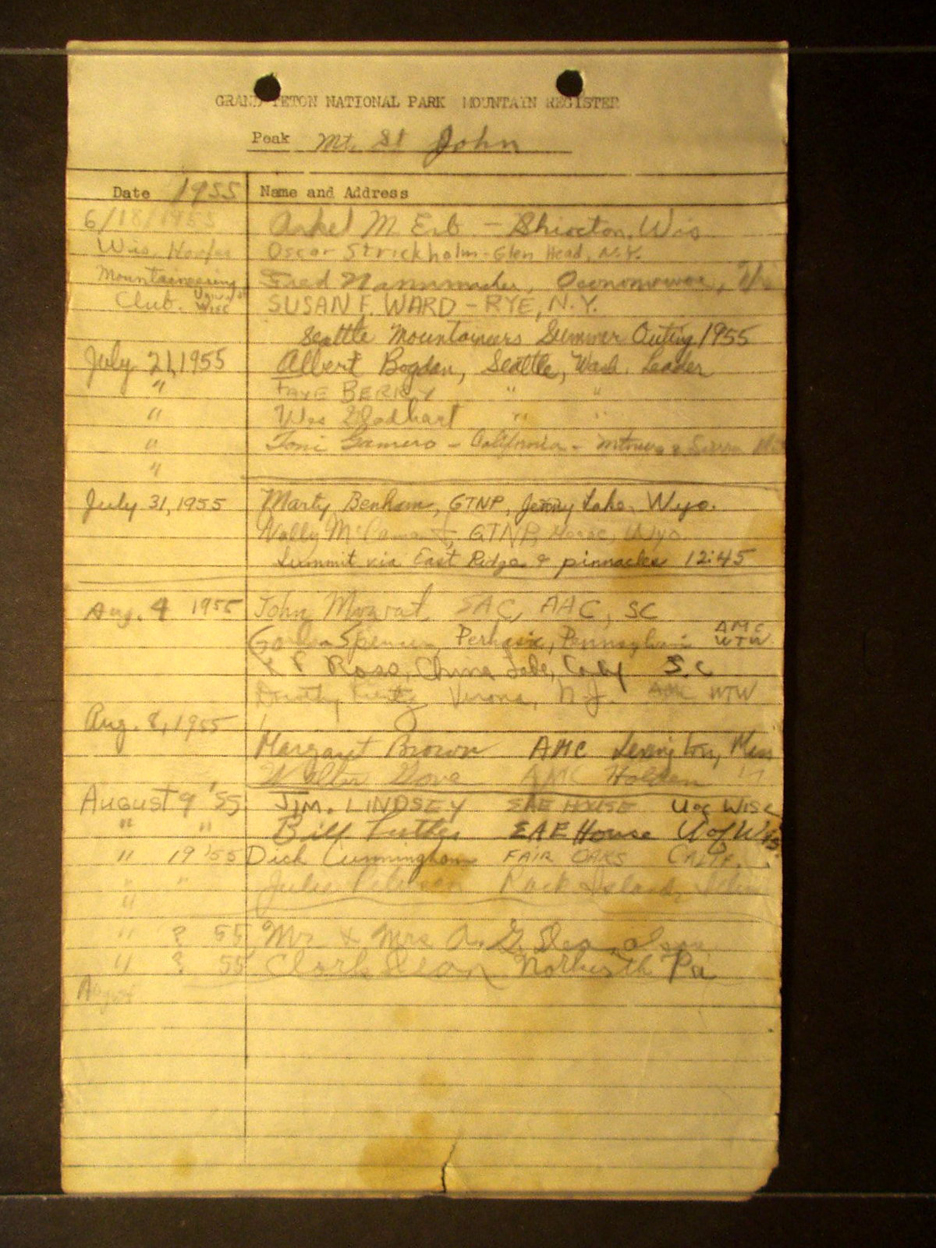 GRAND TETON NATIONAL PARK MOUNTAIN REGISTER
Peak Mt. St John
Date 1955 Name and Address
6/18/1955 Arkel M. Erb - Shiocton, Wis
Wis. Hoofer Oscar Strickholm - Glen Head, N.Y.
Mountaineering Fred
Club. Wisc SUSAN F. WARD - RYE, N.Y.
Seattle Mountaineers Summer Outing 1955
July 21, 1955 Albert Bogdan, Seattle, Wash. Leader
" FAYE BERRY " "
" Wes " "
" Toni - California -
"
July 31, 1955 Marty Benham, GTNP, Jenny Lake, Wyo.
Wally GTNP, Moose, Wyo.
Summit via East Ridge & pinnacles 12:45
Aug. 4 1955 John SAC, AAC, SC
Gordon Spencer, Perkasie, Pennsylvania AMC WTW
Ross, China Lake, Calif S.C
Dorothy Verona, N.J. AMC WTW
Aug. 8, 1955
Margaret Brown AMC Lexington, Mass
Walter Gove AMC Holden "
AUGUST 9 '55 JIM. LINDSEY EAE HOUSE U of Wisc
" " Bill EAE House U of Wis
" 19 '55 Dick Cunningham FAIR OAKS CALIF.
" " Julie Peterson Rock Island,
"
" ? 55 Mr & Mrs A. G. Dean,
" ? 55 Clark Dean, Pa
August